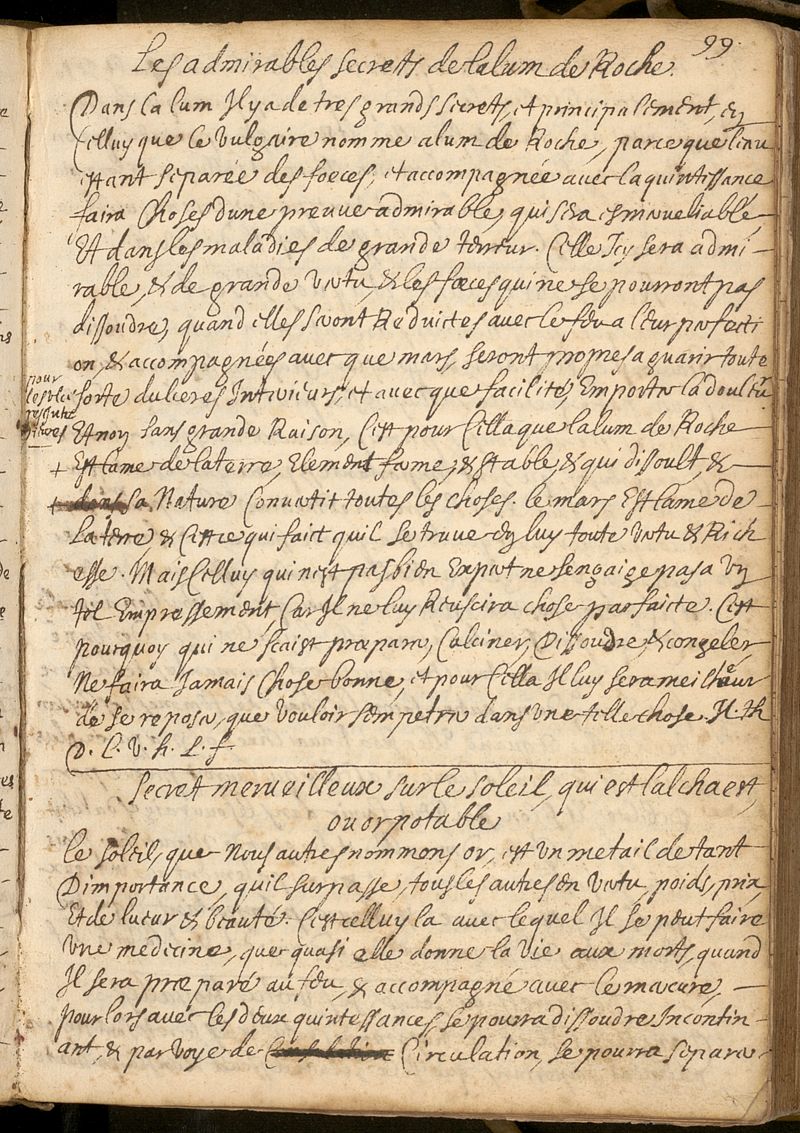 99.
Les admirables secrets de lalum de Roche.
Dans lalum Il y a de tres grands secrets, et principalement, en
Celluy que le Vulgaire nomme alum de Roche, parce que l'eau
estant separée des foeces, et accompagnée avec la quintessance
faira Choses dune preuve admirable, qui sera
Et dans les maladies de grande terreur. Celle Icy sera admi-
rable, & de grande vertu, & les foeces qui ne se pourront pas
dissoudre, quand elles seront Reduictes avec le feu a leur perfecti
on, & accompagnées avec que mars, seront propres a guarir toute
pour
les
sorte dulceres Interieurs, et avec que facilité, Emporter la douleur
Et non sans grande Raison, C'est pour Cella que lalum de Roche
+ Est lame de la terre, Element ferme, & stable, & qui dissoult, &
+ dans sa Nature Convertit toutes les choses. le mars Est lame de
La terre & C'est ce qui faict quil se treuve en luy toute vertu & Rich
esse. Mais Celluy qui n'est pas bien Expert ne sengaige pas a un
tel Empressement, Car Il ne luy Reuscira chose parfaicte. C'est
pourquoy qui ne scaist preparer, Calciner, Dissoudre, & congeler,
Ne faira Jamais Chose bonne, et pour Cella Il luy sera meilheur
de se reposer, que vouloir sempetrer dans une telle chose. Il th
D. L. V. h. L. f
Secret merveilleux sur le soleil, qui est lalchaest,
ou or potable
Le soleil, que Nous autres nommons or, est un metail de tant
D'importance, quil surpasse, tous les autres en vertu, poids, prix,
Et de lueur & beauté. C'est celluy la avec lequel Il se peut faire
une medecine, que quasi elle donne la vie aux morts, quand
Il sera preparé au feu, & accompagné avec le mercure,
pour lors avec les deux quintessances se pourra dissoudre Incontin-
ant, & par voye de Circulation, se pourra separer